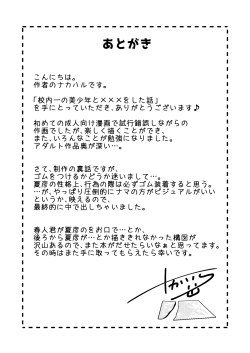 あとがき
こんにちは。
作者のナカハルです。
「校内一の美少年と×××をした話」
を手にとっていただき、ありがとうございます♪
初めての成人向け漫画で試行錯誤しながらの
作画でしたが、楽しく描くことができ、
また、いろんなことが勉強になりました。
アダルト作品奥が深い…。
さて、制作の裏話ですが、
ゴムをつけるかどうか迷いまして…。
夏彦の性格上、行為の際は必ずゴム装着すると思う。
…が、やっぱり圧倒的にナマの方がビジュアルがいい
というか、映えるので、
最終的に中で出しちゃいました。
春人君が夏彦のをお口で…とか、
後ろから夏彦が…とか描ききれなかった構図が
沢山あるので、また本がだせたらいいなぁと思ってます。
その時はまた手に取ってもらえたら幸いです。